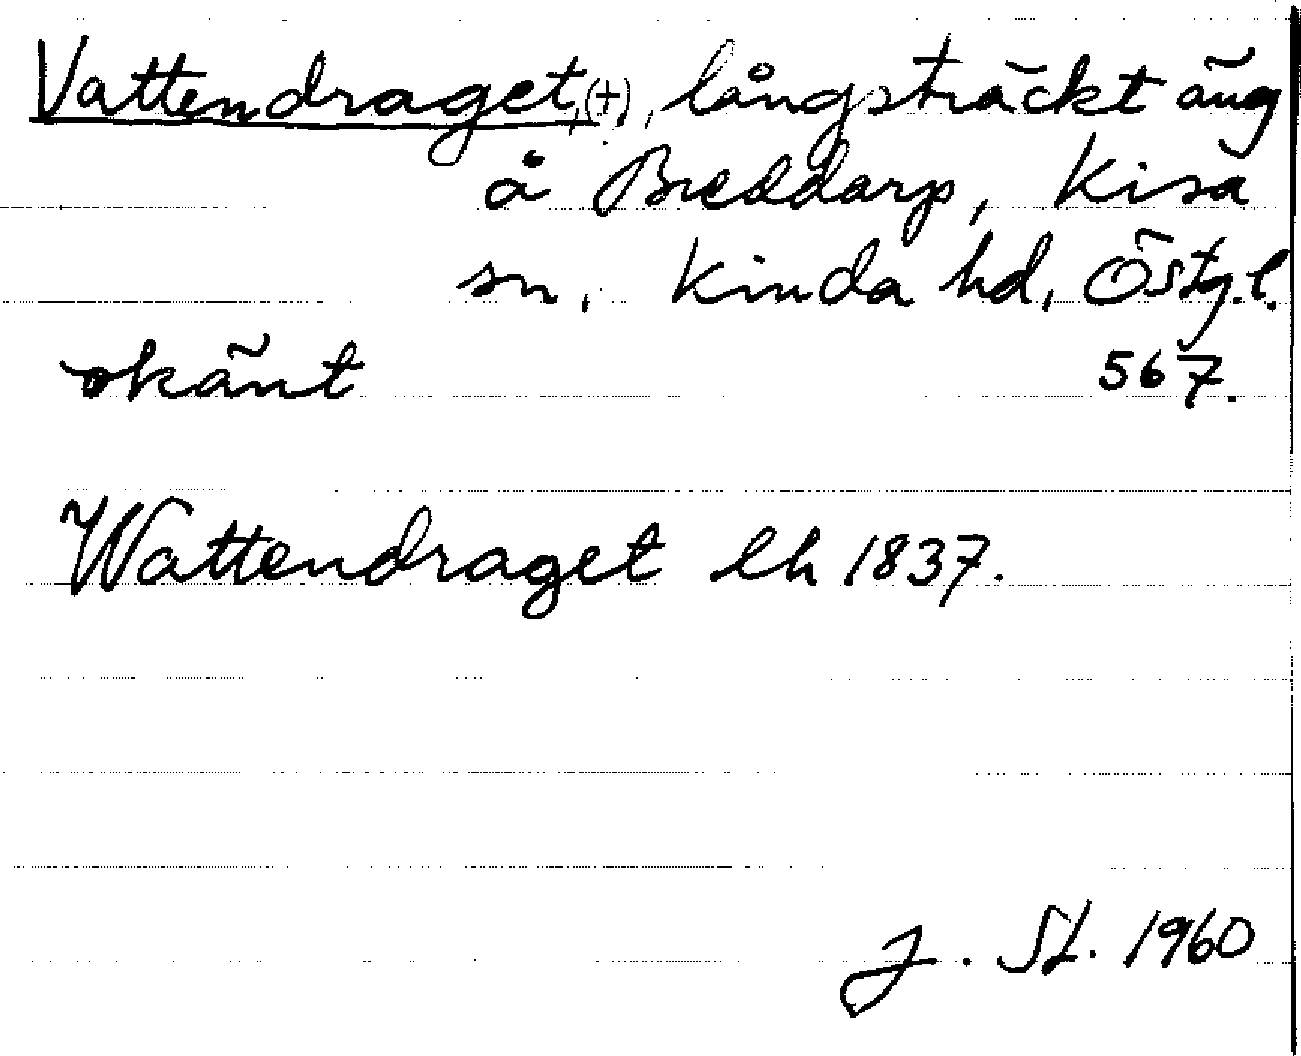 Vattendraget, (+), långsträckt äng
å Breddarp, Kisa
sn, Kinda hd, Östg.l.
okänt 567.
Wattendraget lh 1837.
J. St. 1960